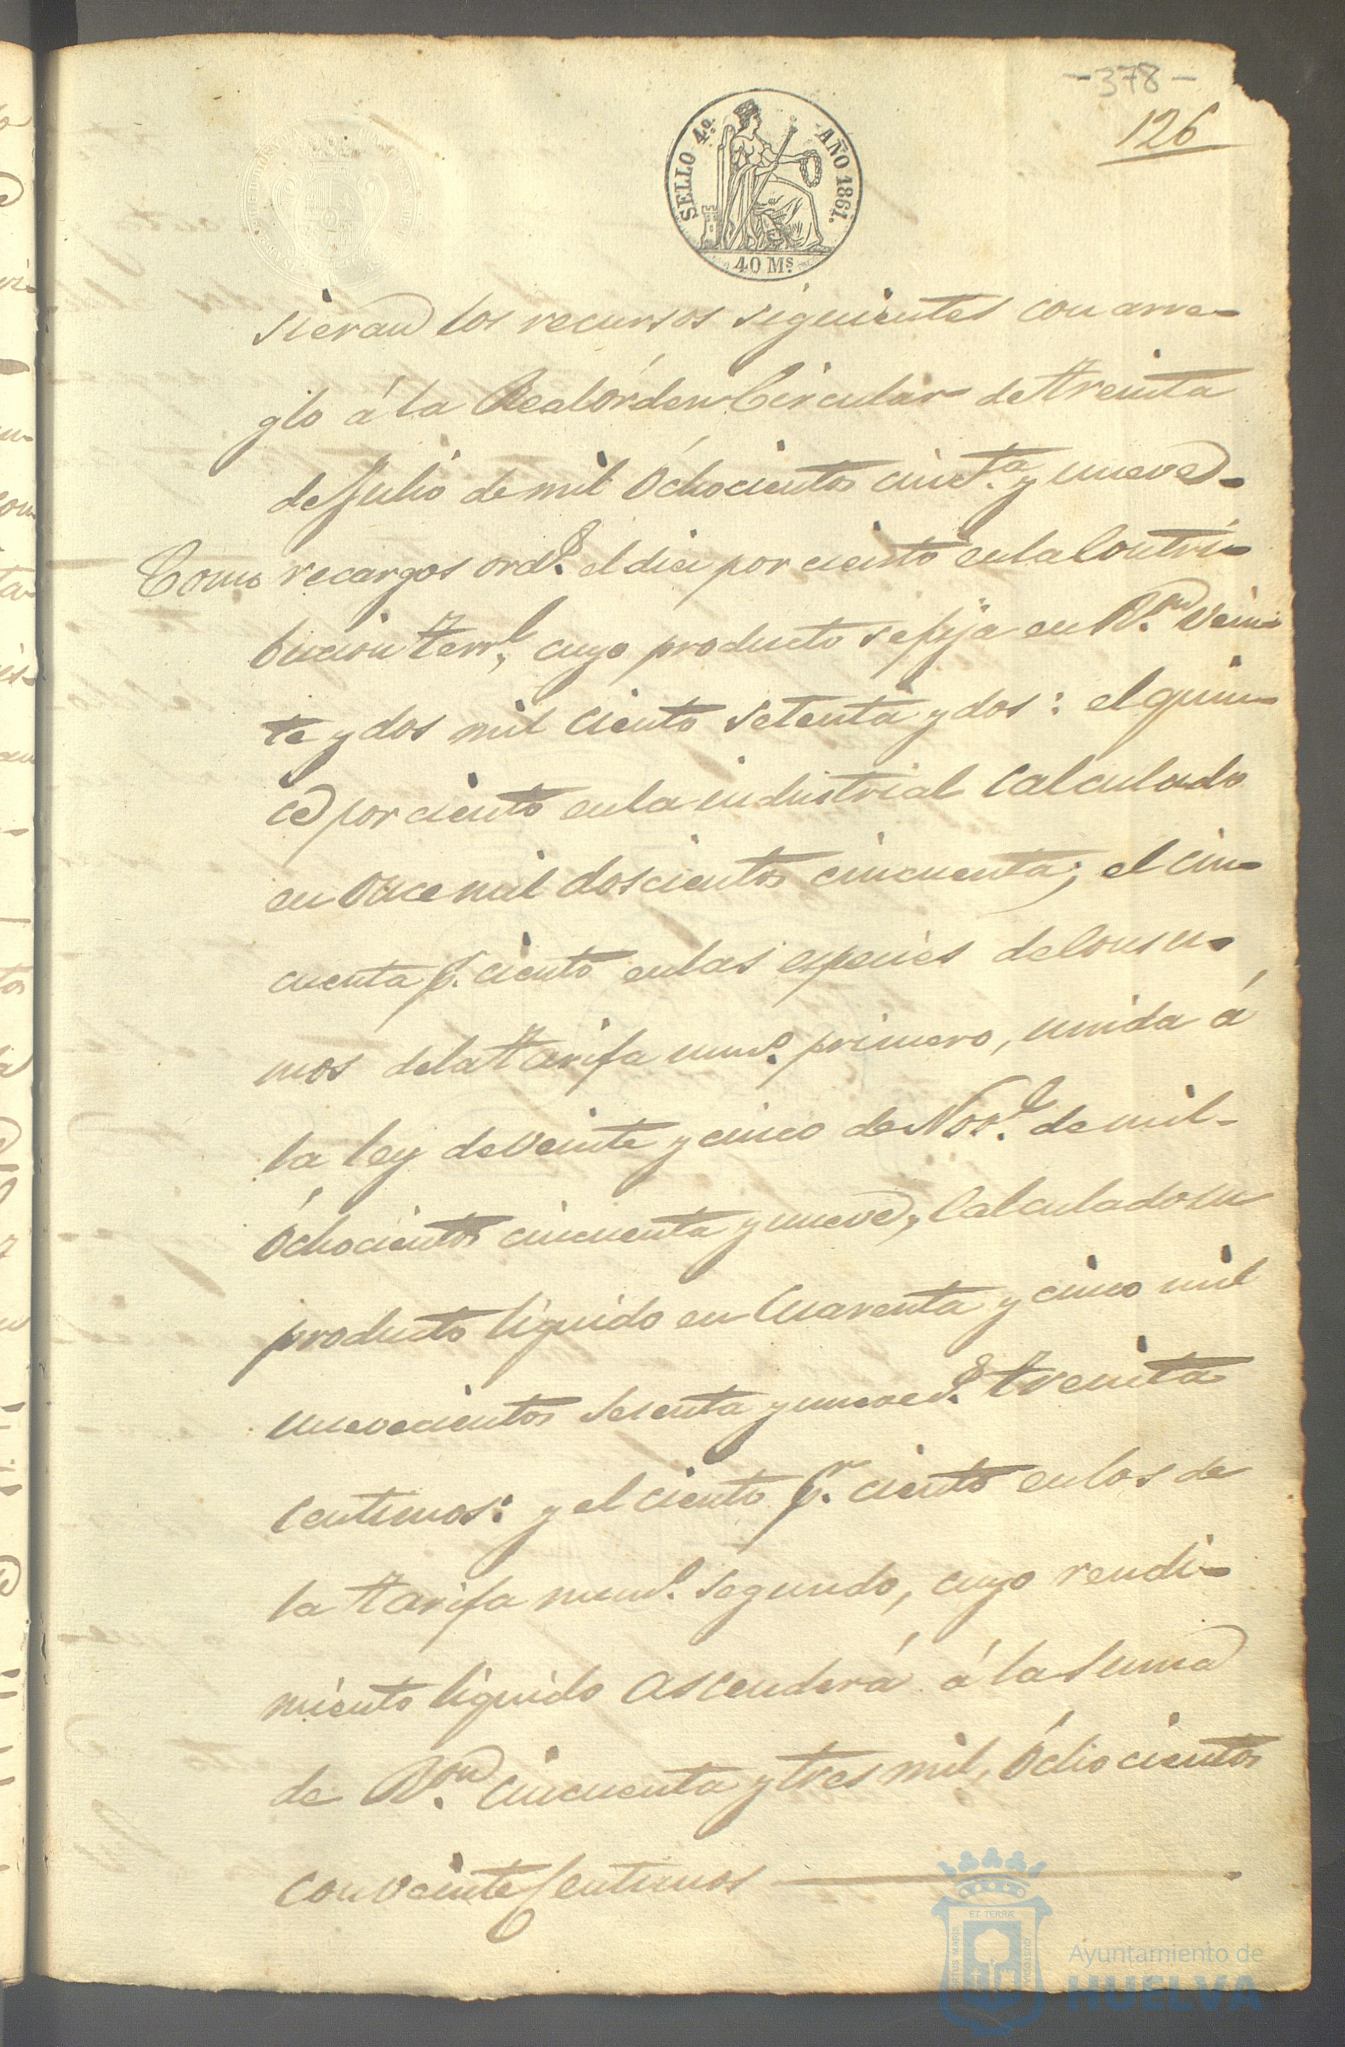 -378-
126
SELLO 4.º AÑO 1861.
40 Ms
sieran los recursos siguientes con arre-
glo á la Real órden Circular de treinta
de Julio de mil ochocientos cincta. y nueve.
Como recargos ords. el diez por ciento en la Contri-
bucion terrl., cuyo producto se fija en Ron. vein-
te y dos mil ciento setenta y dos: el quin-
ce por ciento en la industrial calculado
en once mil doscientos cincuenta; el cin-
cuenta p. ciento en las especies de consu-
mos de la tarifa numo. primero, unida á
la ley de veinte y cinco de Nove. de mil-
ochocientos cincuenta y nueve, calculado su
producto líquido en cuarenta y cinco mil
nuevecientos sesenta y nueve rs. treinta
centimos: y el ciento pr. ciento en los de
la tarifa numo. segundo, cuyo rendi-
miento líquido ascenderá á la suma
de Ron. cincuenta y tres mil, ochocientos
con veinte centimos
Ayuntamiento de
HUELVA